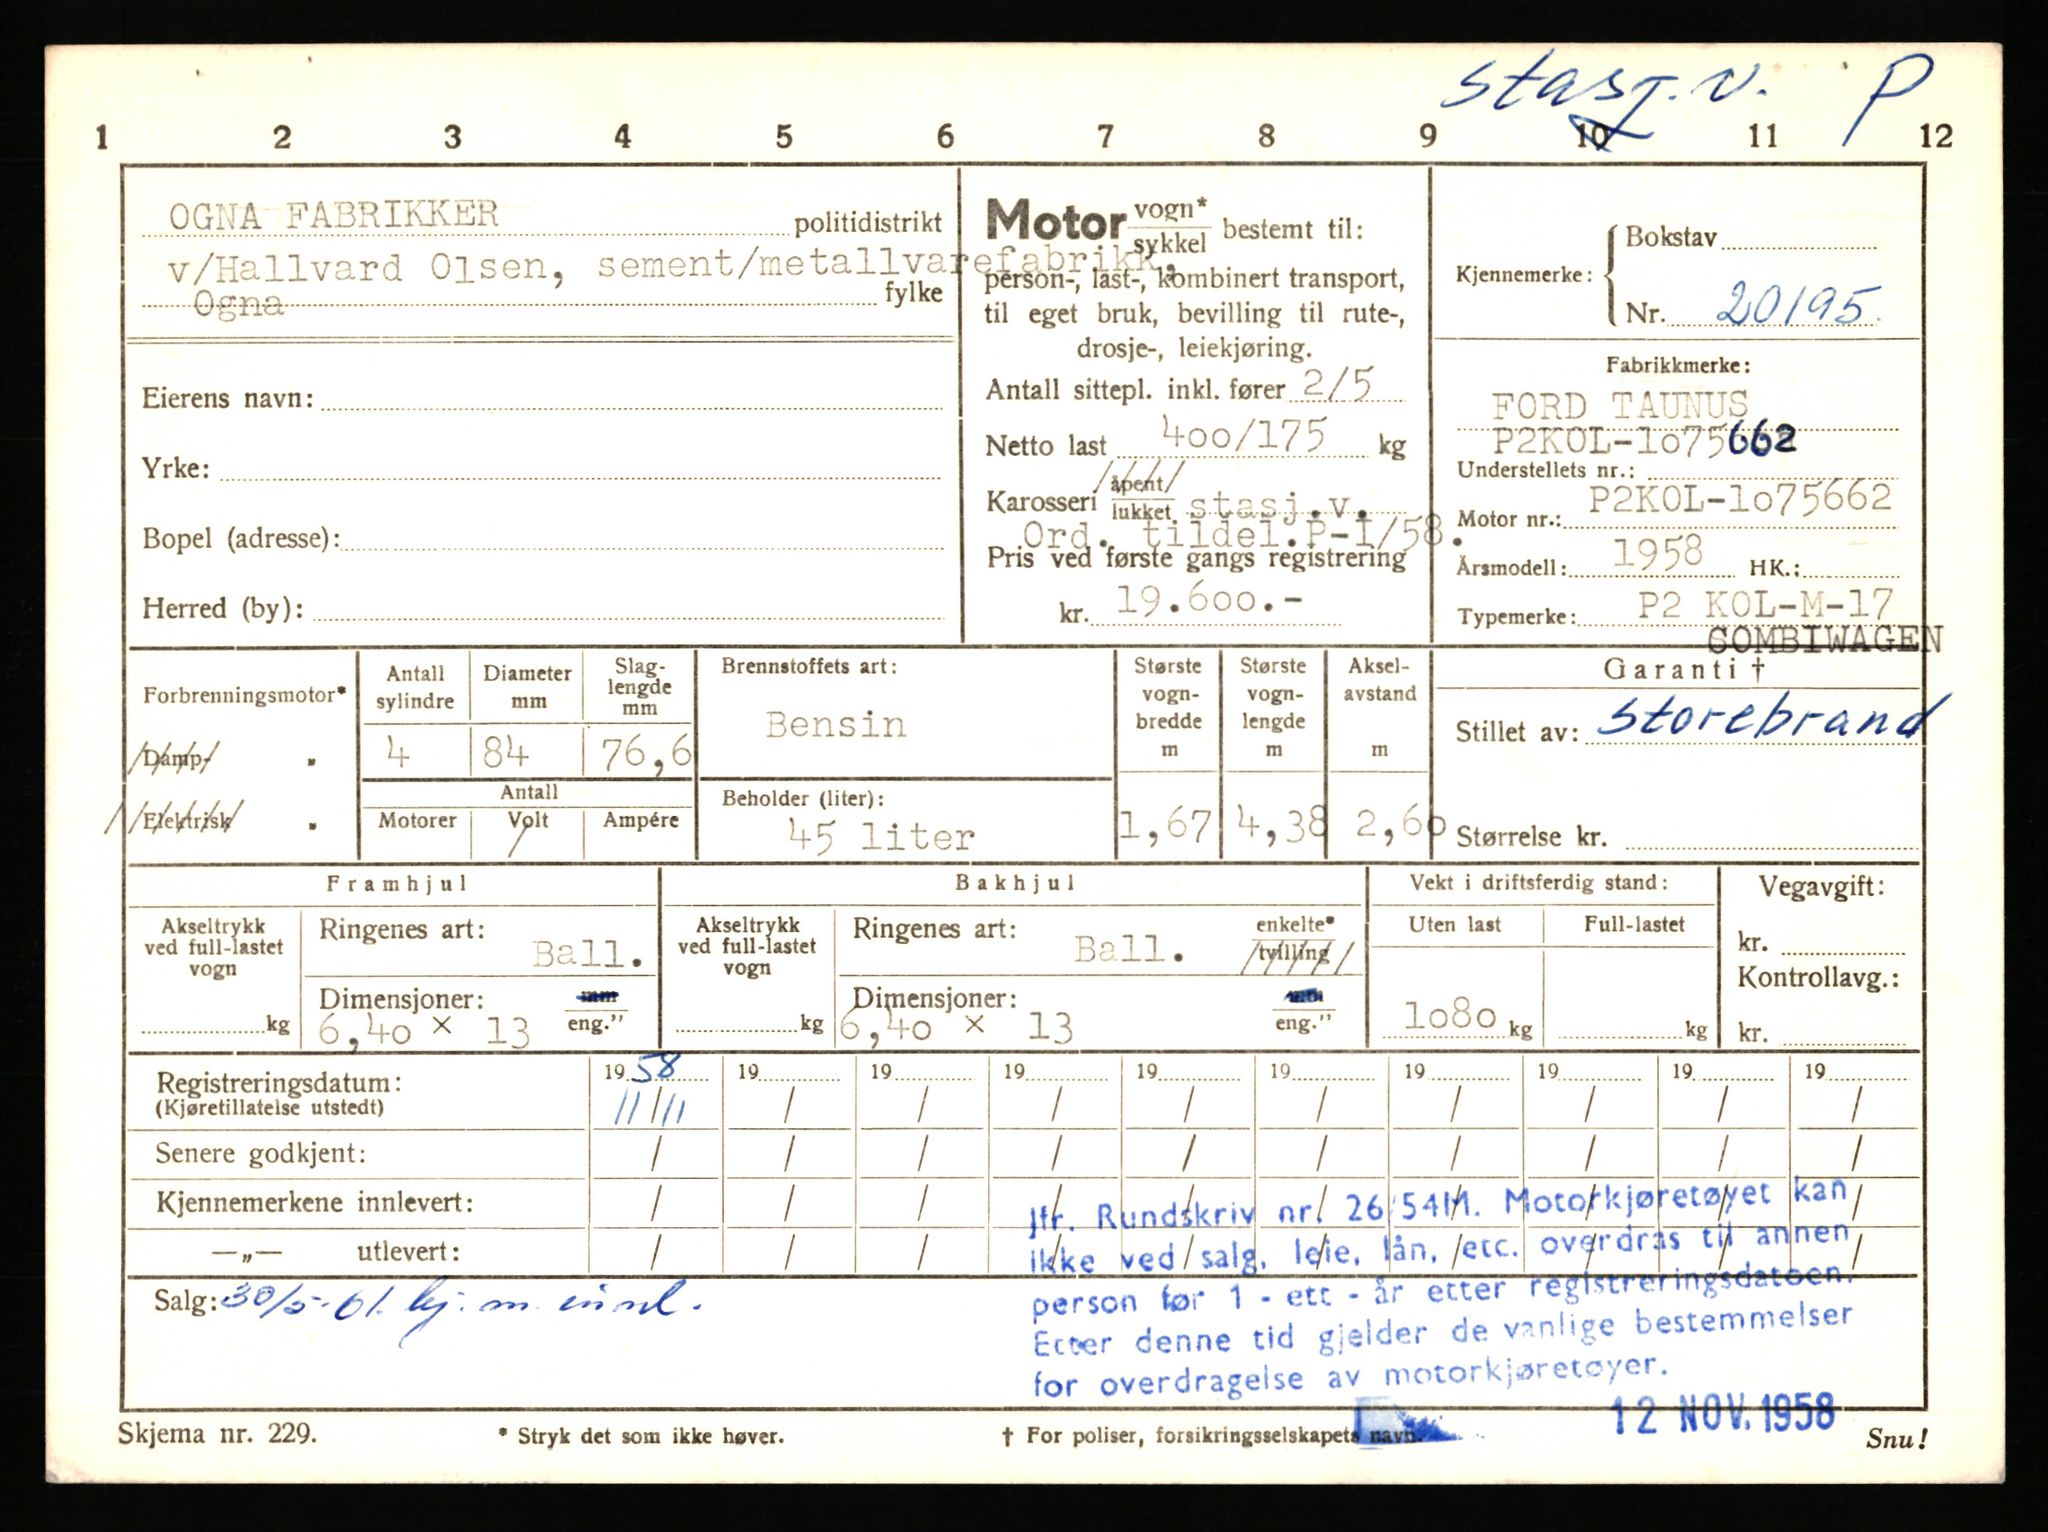 stasj. v. P
1 2 3 4 5 6 7 8 9 10 11 12
OGNA FABRIKKER politidistrikt
v/Hallvard Olsen, sement/metallvarefabrikk,
Ogna fylke
Eierens navn:
Yrke:
Bopel (adresse):
Herred (by):
Motor vogn* / sykkel bestemt til:
person-, last-, kombinert transport,
til eget bruk, bevilling til rute-,
drosje-, leiekjøring.
Antall sittepl. inkl. fører 2/5
Netto last 400/175 kg
Karosseri åpent / lukket stasj.v.
Ord. tildel.P-1/58.
Pris ved første gangs registrering
kr. 19.600.-
Kjennemerke: Bokstav
Nr. 20195.
Fabrikkmerke:
FORD TAUNUS
P2KOL-1o75662
Understellets nr.:
Motor nr.: P2KOL-1o75662
Årsmodell: 1958 HK.:
Typemerke: P2 KOL-M-17
COMBIWAGEN
Forbrenningsmotor*
Damp- "
Elektrisk "
Antall sylindre
4
Diameter mm
84
Slag-
lengde
mm
76,6
Antall
Motorer Volt Ampére
Brennstoffets art:
Bensin
Beholder (liter):
45 liter
Største
vogn-
bredde
m
1,67
Største
vogn-
lengde
m
4,38
Aksel-
avstand
m
2,60
Garanti †
Stillet av: Storebrand
Størrelse kr.
Framhjul
Akseltrykk
ved full-lastet
vogn
kg
Ringenes art:
Ball.
Dimensjoner: mm
6,40 × 13 eng."
Bakhjul
Akseltrykk
ved full-lastet
vogn
kg
Ringenes art: enkelte*
Ball. tvilling
Dimensjoner:
6,40 × 13 eng."
Vekt i driftsferdig stand:
Uten last Full-lastet
1o80 kg kg
Vegavgift:
kr.
Kontrollavg.:
kr.
Registreringsdatum: 1958 19 19 19 19 19 19 19 19 19
(Kjøretillatelse utstedt) 11/11 / / / / / / / / /
Senere godkjent: / / / / / / / / / /
Kjennemerkene innlevert: / / / / / / / / / /
—„— utlevert: / / / / / / / / / /
Jfr. Rundskriv nr. 26/54M. Motorkjøretøyet kan
ikke ved salg, leie, lån, etc. overdras til annen
person før 1 - ett - år etter registreringsdatoen.
Etter denne tid gjelder de vanlige bestemmelser
for overdragelse av motorkjøretøyer.
Salg: 30/5-61. kj. m. innl.
12 NOV. 1958
Skjema nr. 229. * Stryk det som ikke høver. † For poliser, forsikringsselskapets navn. Snu!